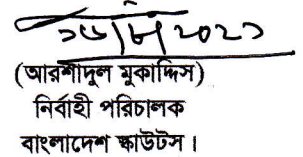 (আরশাদুল মুকাদ্দিস)
নির্বাহী পরিচালক
বাংলাদেশ স্কাউটস।